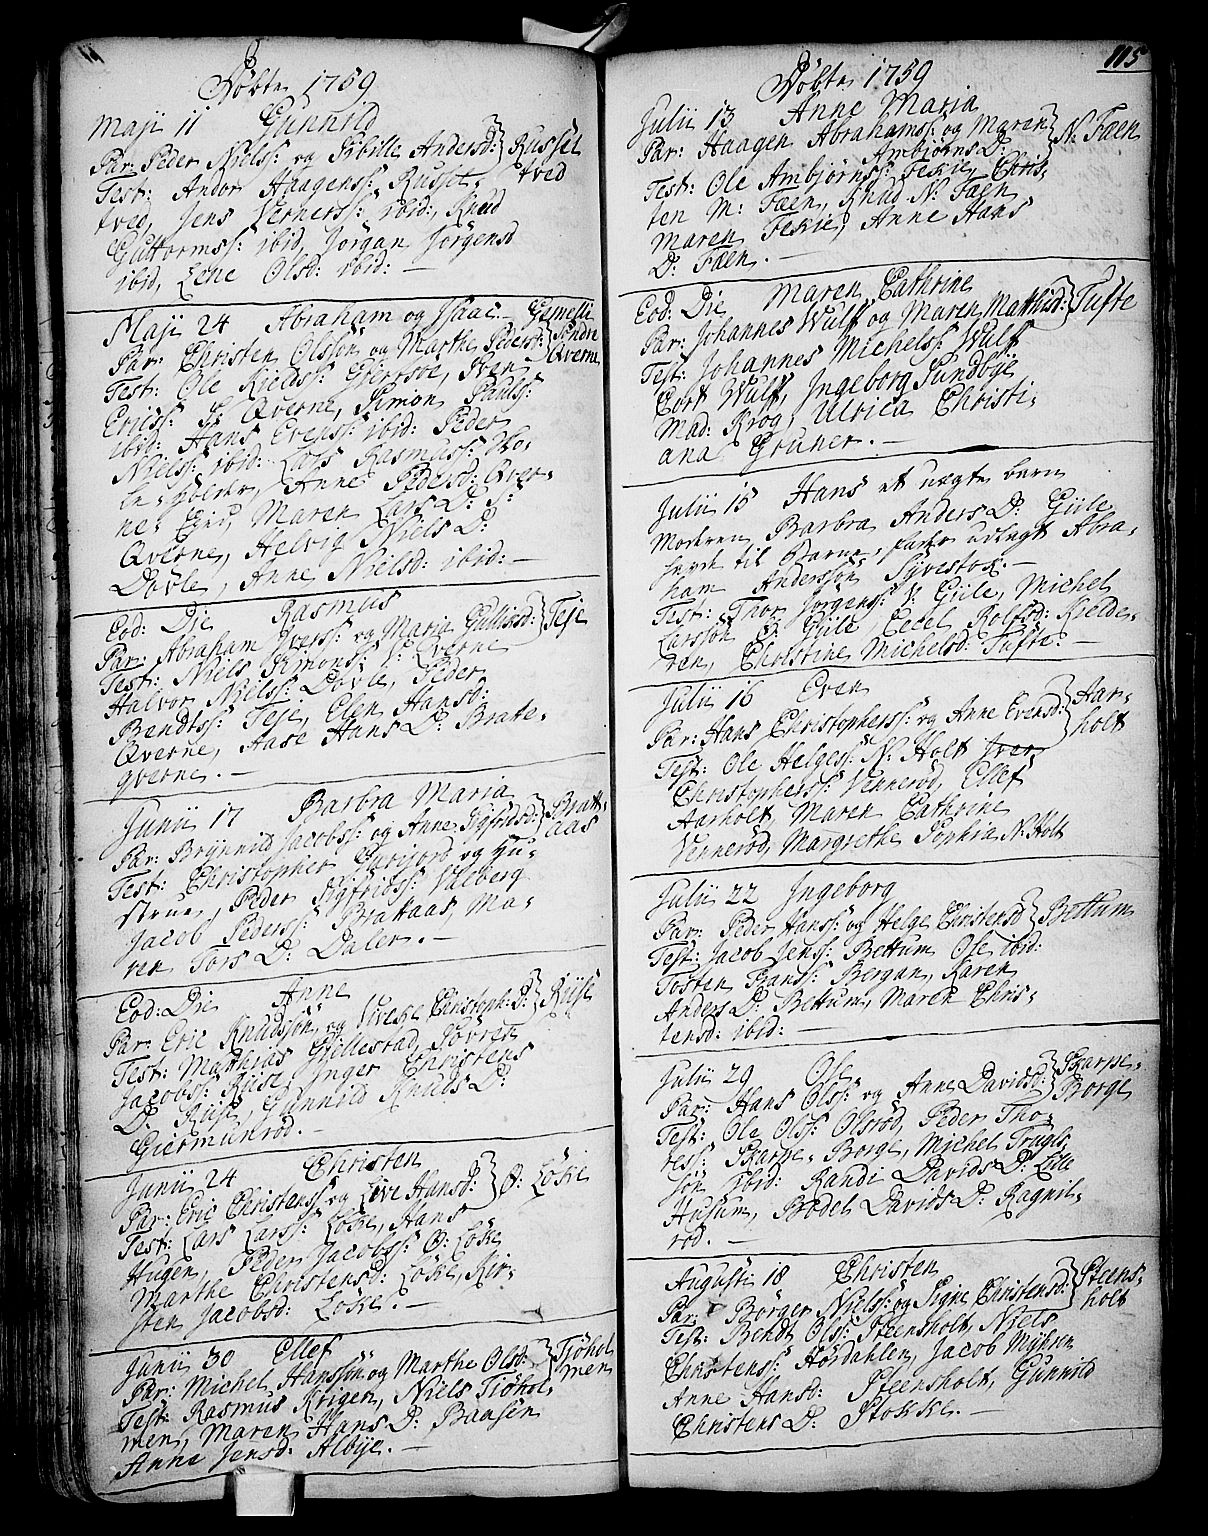 Döbte 1759
Maji 11 Gunnild
Par: Peder Nielss: og Sibille Andersd: Russel
Test: Andor Haagenss: Russel, tved
tved, Jens Vernerss: ibid:, Knud
Guttormss: ibid, Jörgan Jörgensd
ibid, Lene Olsd: ibid: —
Maji 24 Abraham og Isaac — Gemelli
Par: Christen Olssön og Marthe Pedersd: Söndre
Test: Ole Kieldss: Gjertsöe, Sven Qverne
Ericss: S: Qverne, Simon Paulss:
ibid: Hans Evenss: ibid: Peder
Nielss: ibid: Lars Rasmuss: Wo-
le-Holder, Anne Pedersd: Qver-
ne-Eged, Maren Lars D: S:
Qverne, Helvig Niels D:
Dövle, Anne Nielsd: ibid: —
Eod: Die Rasmus
Par: Abraham Iverss: og Maria Gullisd: Teje
Test: Niels Simonss: S: Qverne
Halvor Nielss: Dövle, Peder
Bendtss: Teje, Elen Hansd:
Qverne, Aase Hans D: Brate-
qverne. —
Junii 17 Barbra Maria
Par: Brynnild Jacobss: og Anne Sigfridsd: Bratt-
Test: Christopher Gurijord og Hu- aas
struer, Peder Sigfridss: Valberg
Jacob Pederss: Brataas, Ma-
ren Tors D: Dalen. —
Eod: Die Anne
Par: Eric Knudssön, og Siveke Christoph: D: Riise
Test: Matthias Gjellestad, Sövren
Jacobss: Riise, Inger Christens
D: Riise, Gunnild Knuds D:
Giermunrod. —
Junii 24 Christen
Par: Eric Christenss: og Live Hansd: Ö: Löke
Test: Lars Larss: Löke, Hans
Hugen, Peder Jacobss: Ö: Löke
Marthe Christensd: Löke, Kir-
sten Jacobsd: Löke. —
Junii 30 Ellef
Par: Michel Hanssön og Marthe Olsd: Tiöhol
Test: Rasmus Kriger, Niels Tiöhol, men
men, Maren Hans D: Baasen
Anna Jensd: Albye. —
115
Döbte 1759
Julii 13 Anne Maria
Par: Haagen Abrahamss: og Maren N: Fæen
Ambjörns D:
Test: Ole Ambjörnss: Feskie, Chris-
ten M: Fæen, Knud N: Fæen
Maren Feskie, Anne Hans
D: Fæen. —
Eod: Die Maren Cathrine
Par: Johannes Wulf og Maren Matthisd: Tufte
Test: Johannes Michelss: Wulf
Cort Wulf, Ingeborg Sundbye
Mad: Krog, Ulrica Christi-
ana Gruner. —
Julii 15 Hans et uægte barn
Moderen Barbra Anders D: Giile
havde til Barne-fader udlagt Abra-
ham Anderssön Syvestok. —
Test: Thor Jörgenss: V: Giile, Michel
Larssön Ö: Giile, Cecel Rolfsd: Kielde-
ren, Christine Michelsd: Tufte. —
Julii 16 Even
Par: Hans Christopherss: og Anne Evensd: Aar-
Test: Ole Helgess: N: Holt, Iver holt
Christopherss: Vennerod, Ellef
Aarholt, Maren Cathrine
Vennerod, Margrethe Sophia N: Holt
Julii 22 Ingeborg
Par: Peder Hanss: og Helge Christensd Bettum
Test: Jacob Jenss: Bettum Ose ibid:
Tosten Hanss: Bergan, Karen
Anders D: Bettum, Maren Chris-
tensd: ibid: —
Julii 29 Ose
Par: Hans Olss: og Anne Davidsd: Skarpe-
Test: Ole Olss: Olsrod, Peder Tho- Borge
ress: Skarpe-Borge, Michel Truls-
sön ibid: Randi Davids D: Lille
Husum, Bodel Davids D: Ragnil-
rod. —
Augusti 18 Christen
Par: Börger Nielss: og Signe Christensd: Steens-
Test: Bendt Olss: Steensholt, Niels holt
Christenss: Hördahlen, Jacob Myhren
Anne Hansd: Steensholt, Gunnild
Christens D: Stokke. —